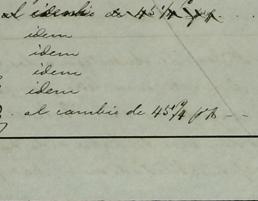 al cambio de 45 1/4
idem
idem
idem
idem
al cambio de 45 3/4 p%